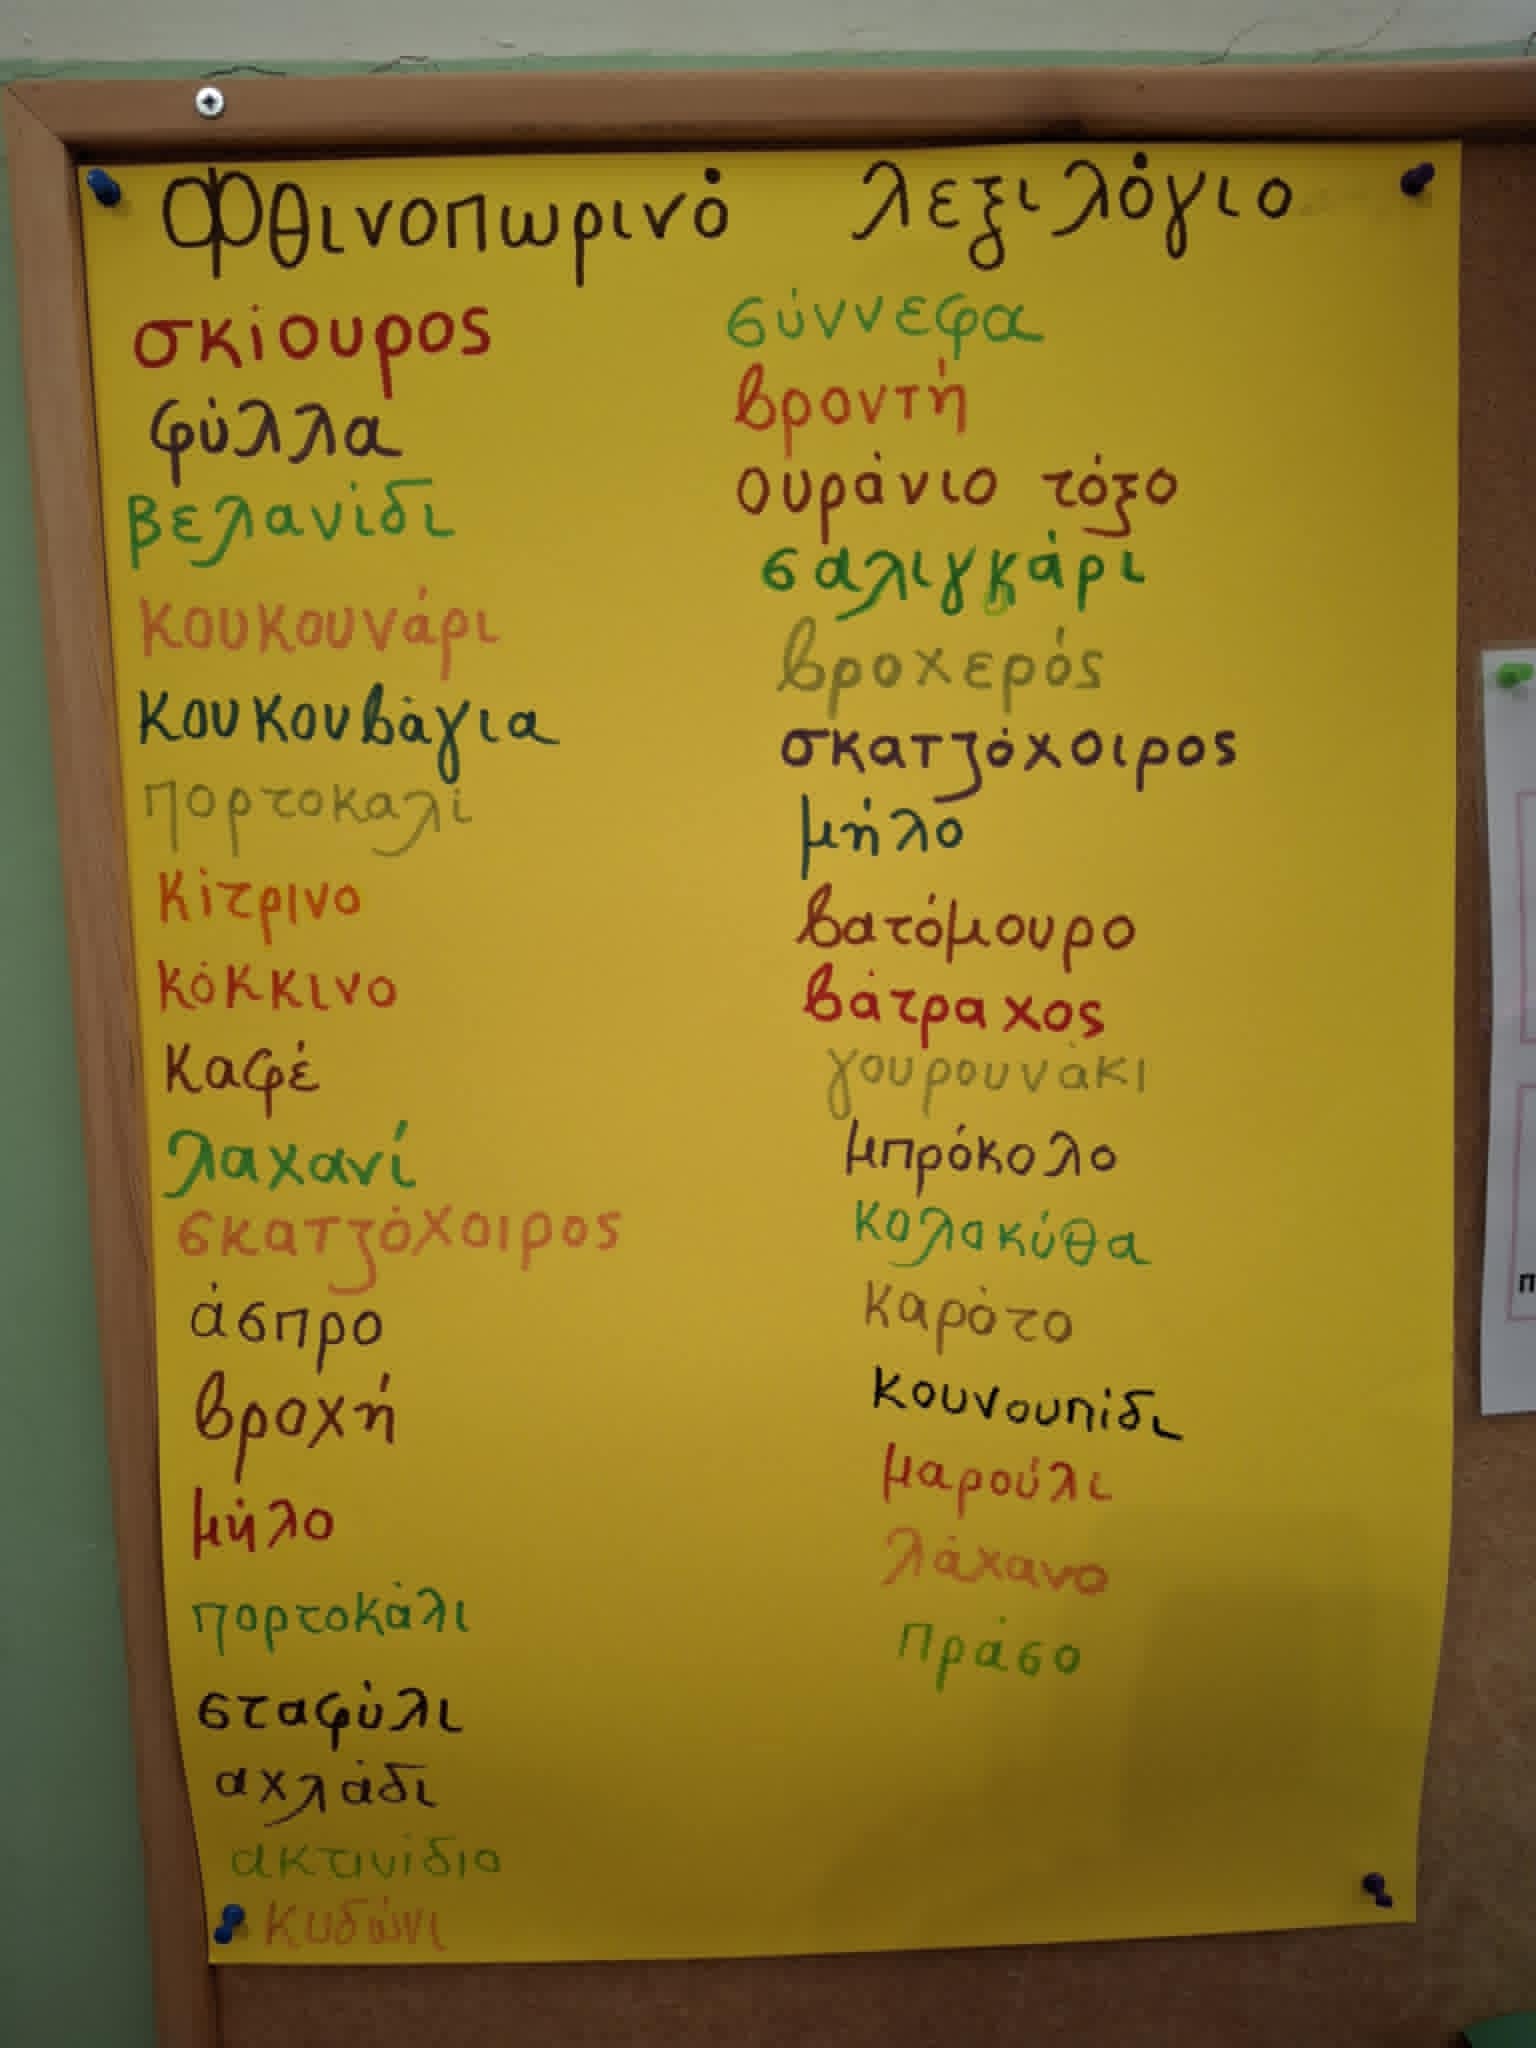 Φθινοπωρινό λεξιλόγιο
σκίουρος
φύλλα
βελανίδι
κουκουνάρι
κουκουβάγια
πορτοκαλί
κίτρινο
κόκκινο
καφέ
λαχανί
σκατζόχοιρος
άσπρο
βροχή
μήλο
πορτοκάλι
σταφύλι
αχλάδι
ακτινίδιο
κυδώνι
σύννεφα
βροντή
ουράνιο τόξο
σαλιγκάρι
βροχερός
σκατζόχοιρος
μήλο
βατόμουρο
βάτραχος
γουρουνάκι
μπρόκολο
κολοκύθα
καρότο
κουνουπίδι
μαρούλι
λάχανο
πράσο
π